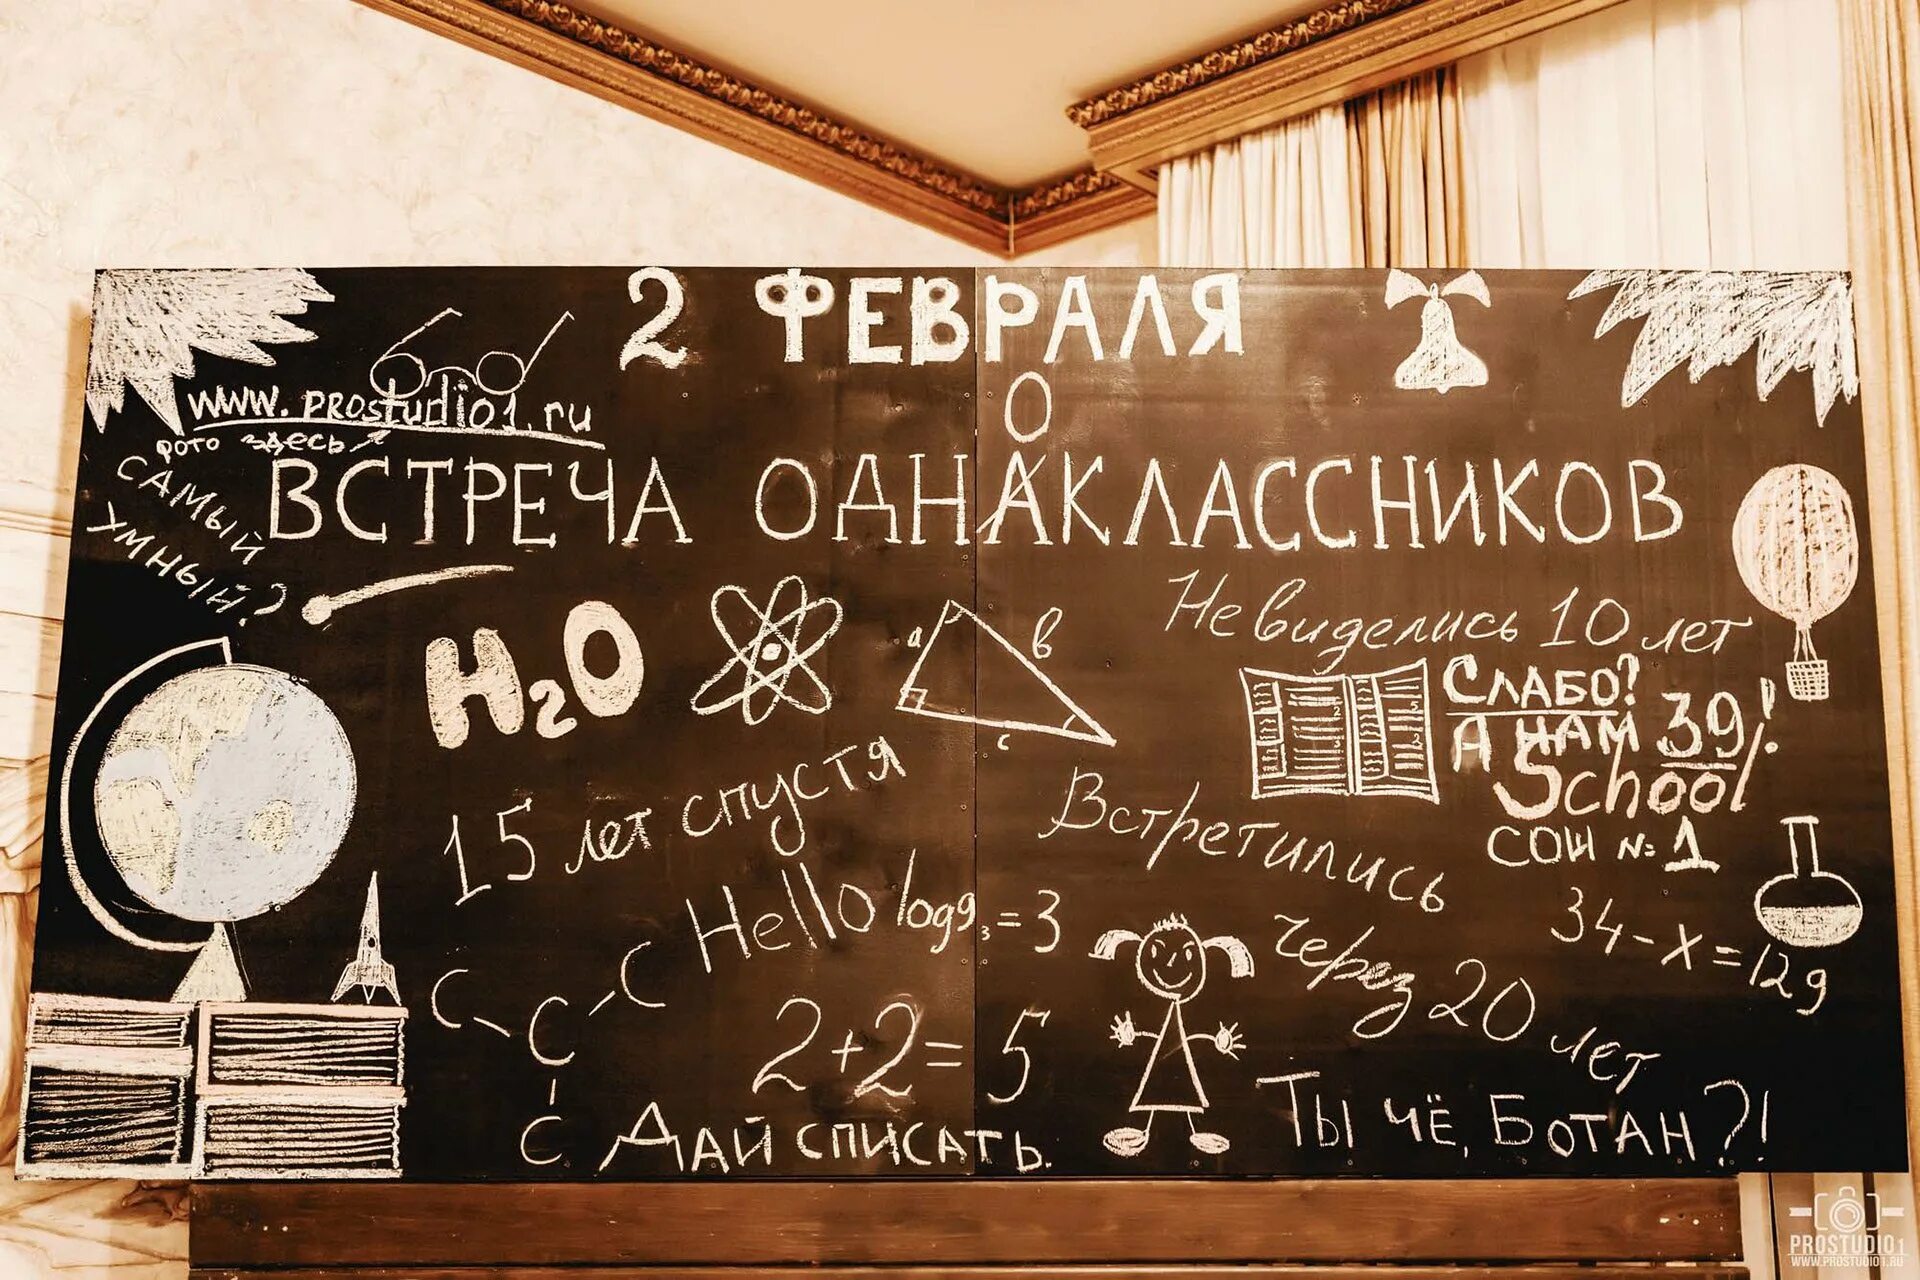 2 ФЕВРАЛЯ
www.prostudio1.ru
фото здесь
О
ВСТРЕЧА ОДНАКЛАССНИКОВ
САМЫЙ
УМНЫЙ?
H2O
a
b
c
Не виделись 10 лет
СЛАБО?
А НАМ 39!
School!
СОШ №1
15 лет спустя
Встретились
Hello log9₃=3
через 20 лет
34-x=129
C
C
C
C
2+2=5
ДАЙ СПИСАТЬ.
ТЫ ЧЁ, БОТАН?!
PROSTUDIO1
WWW.PROSTUDIO1.RU